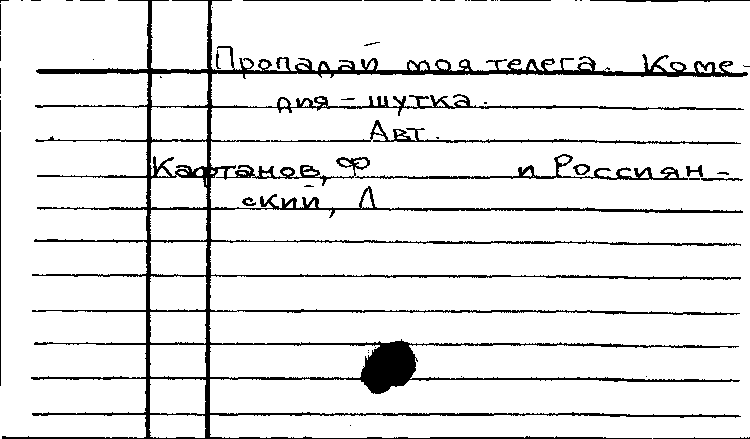 Пропадай моя телега. Коме-
дия - шутка.
Авт.
Кафтанов, Ф и Россиян-
ский, Л